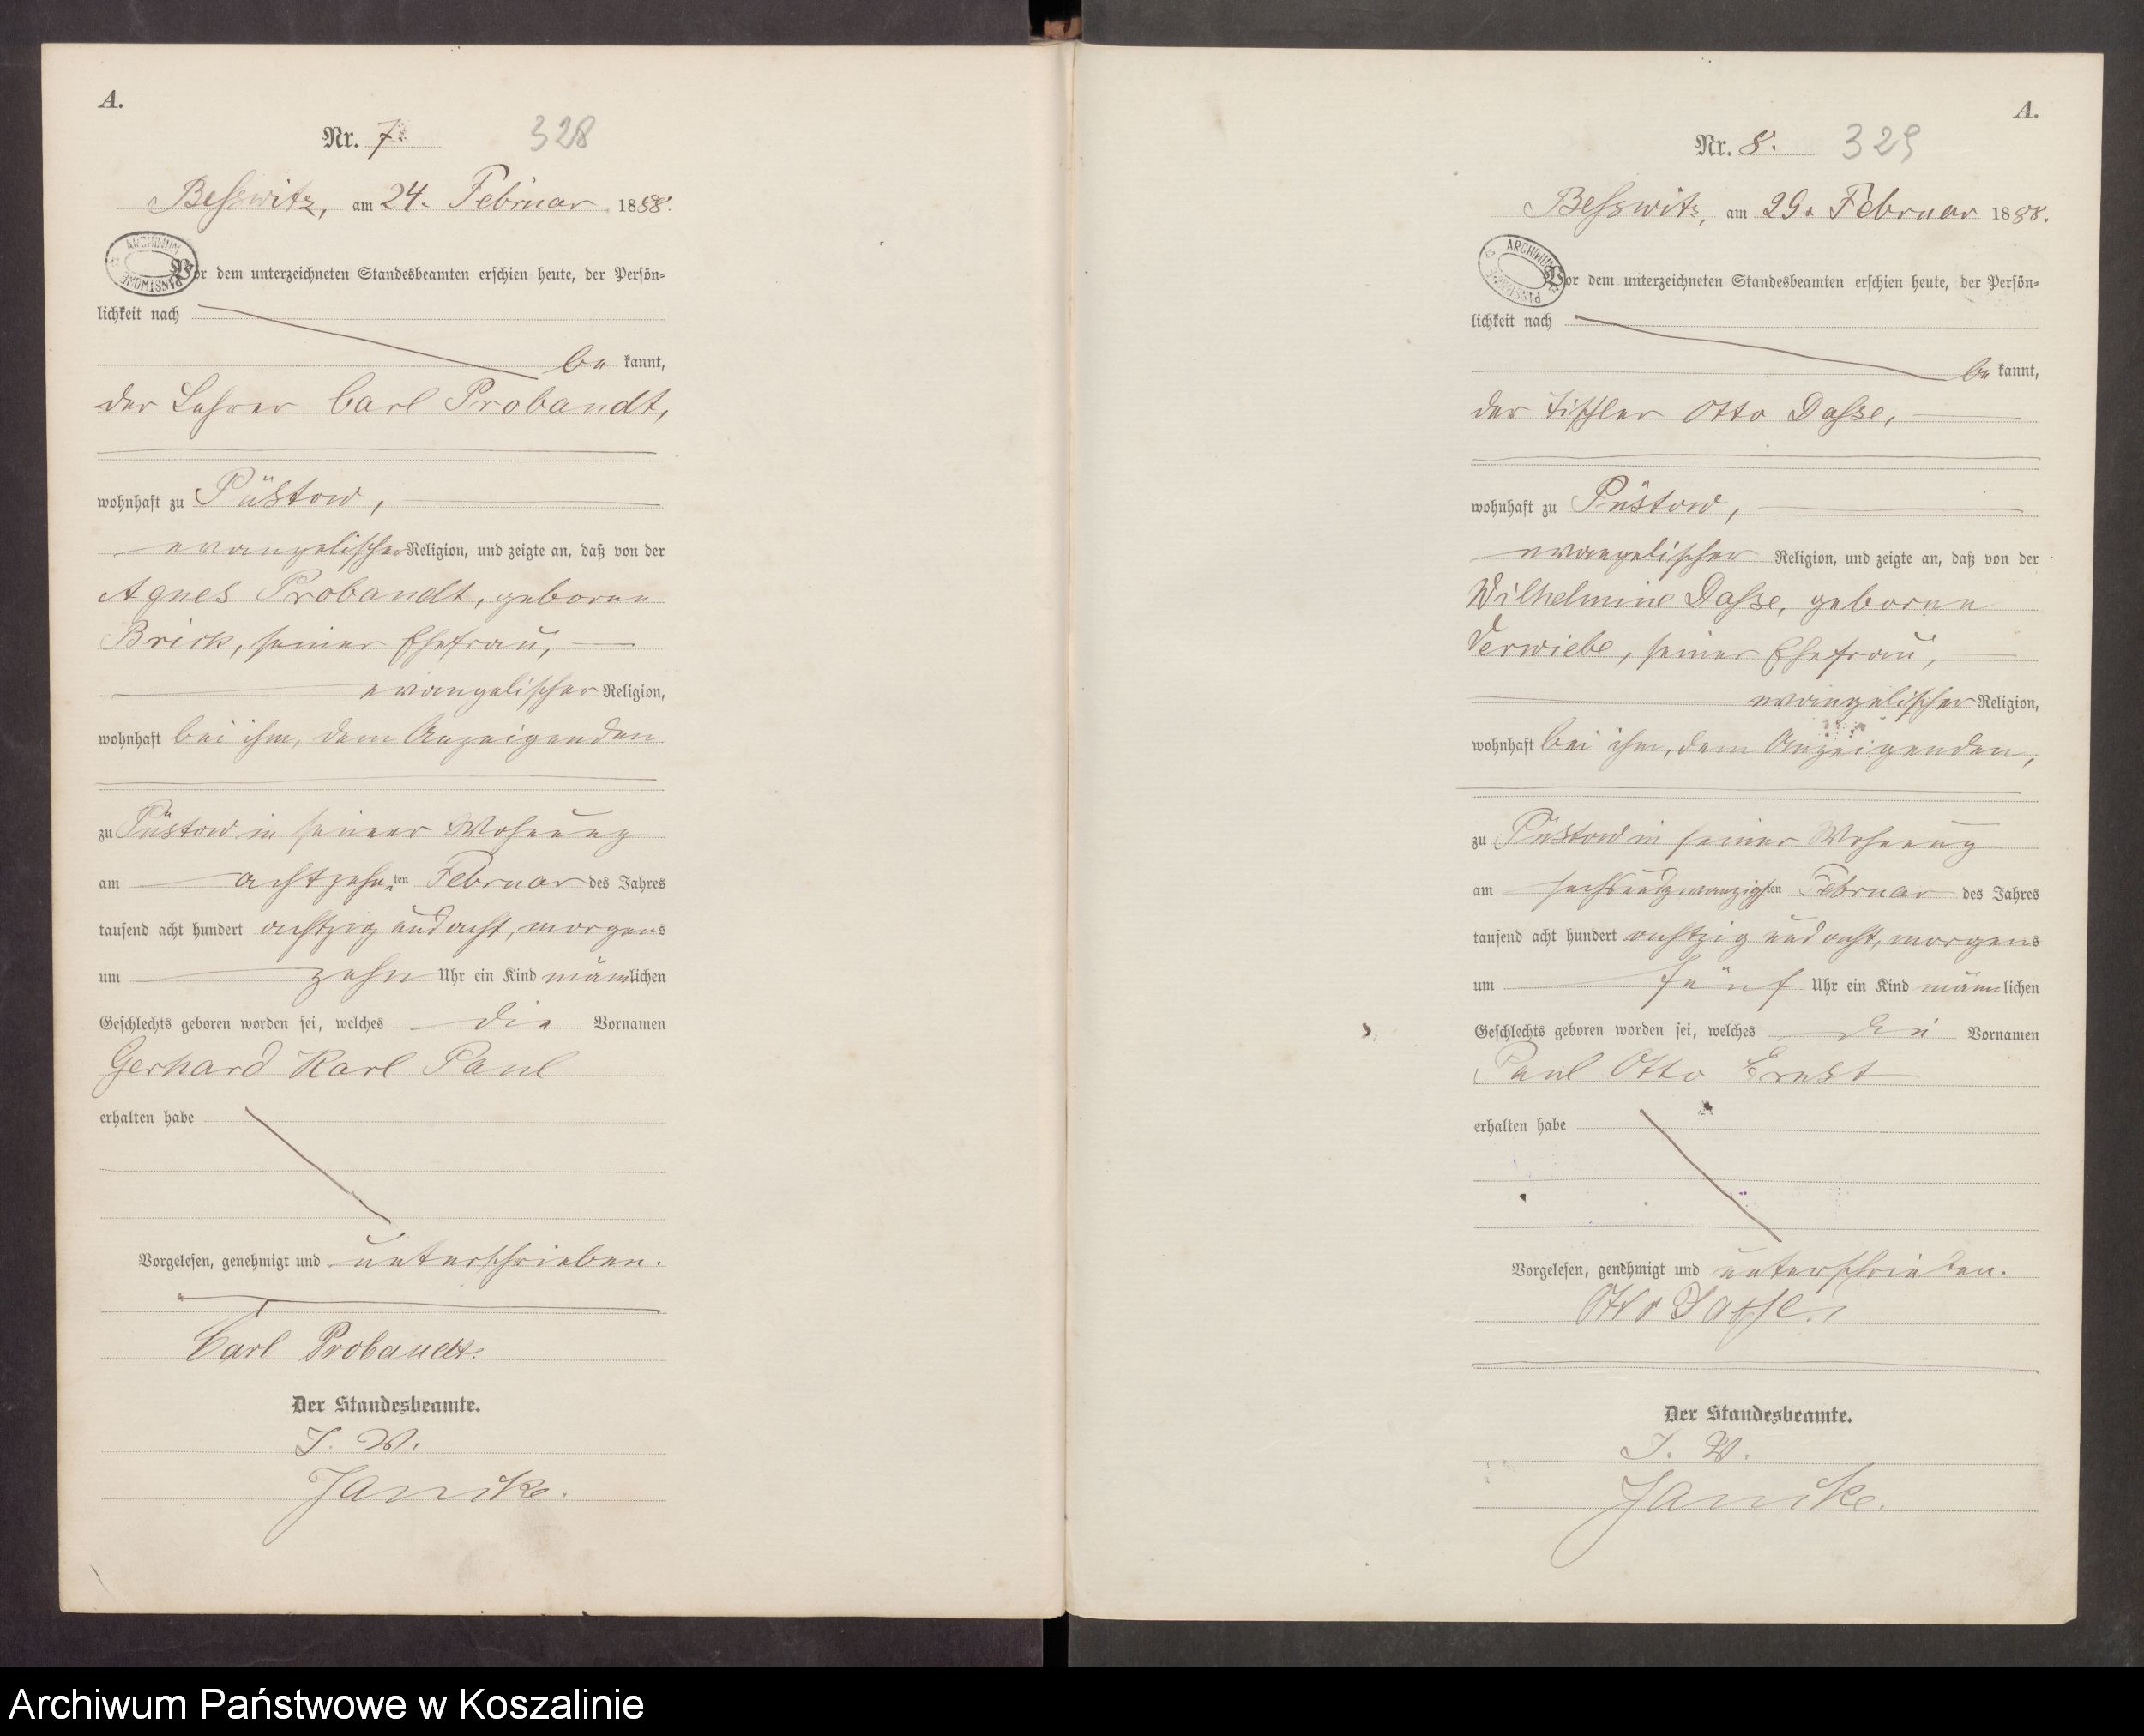 A.
Nr. 7. 328
Besswitz, am 24. Februar 1888.
ARCHIWUM PAŃSTWOWE
Vor dem unterzeichneten Standesbeamten erschien heute, der Persön=
lichkeit nach
be kannt,
der Lehrer Carl Probandt,
wohnhaft zu Püstow,
evangelischer Religion, und zeigte an, daß von der
Agnes Probandt, geborene
Brick, seiner Ehefrau,
evangelischer Religion,
wohnhaft bei ihm, dem Anzeigenden
zu Püstow in seiner Wohnung
am achtzehnten Februar des Jahres
tausend acht hundert achtzig und acht, morgens
um zehn Uhr ein Kind männlichen
Geschlechts geboren worden sei, welches die Vornamen
Gerhard Karl Paul
erhalten habe
Vorgelesen, genehmigt und unterschrieben.
Carl Probandt.
Der Standesbeamte.
J. V.
Janike.
A.
Nr. 8. 329
Besswitz, am 29. Februar 1888.
ARCHIWUM PAŃSTWOWE
Vor dem unterzeichneten Standesbeamten erschien heute, der Persön=
lichkeit nach
be kannt,
der Tischler Otto Dasse,
wohnhaft zu Püstow,
evangelischer Religion, und zeigte an, daß von der
Wilhelmine Dasse, geborene
Verwiebe, seiner Ehefrau,
evangelischer Religion,
wohnhaft bei ihm, dem Anzeigenden,
zu Püstow in seiner Wohnung
am sechsundzwanzigsten Februar des Jahres
tausend acht hundert achtzig und acht, morgens
um fünf Uhr ein Kind männlichen
Geschlechts geboren worden sei, welches die Vornamen
Paul Otto Ernst
erhalten habe
Vorgelesen, genehmigt und unterschrieben.
Otto Dasse.
Der Standesbeamte.
J. V.
Janike.
Archiwum Państwowe w Koszalinie